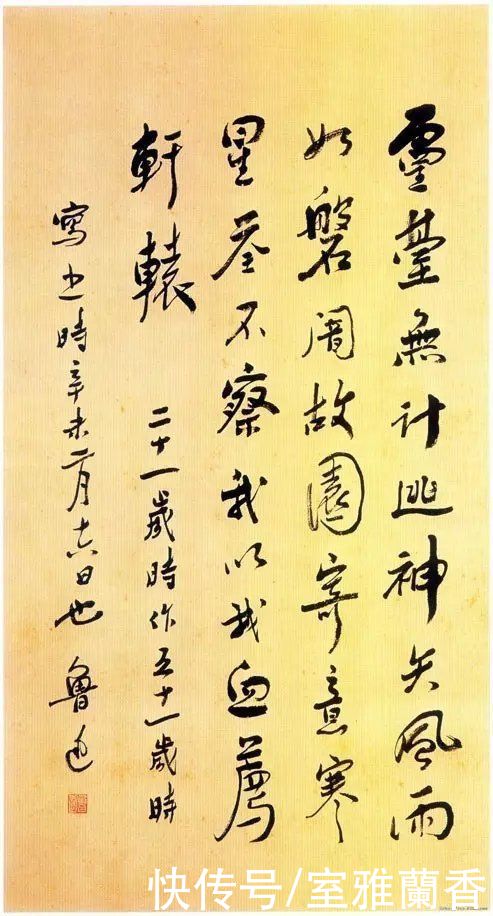 靈臺無計逃神矢風雨
如磐闇故園寄意寒
星荃不察我以我血薦
軒轅 二十一歲時作五十一歲時
寫之時辛未二月十六日也 魯迅
快传号/室雅蘭香